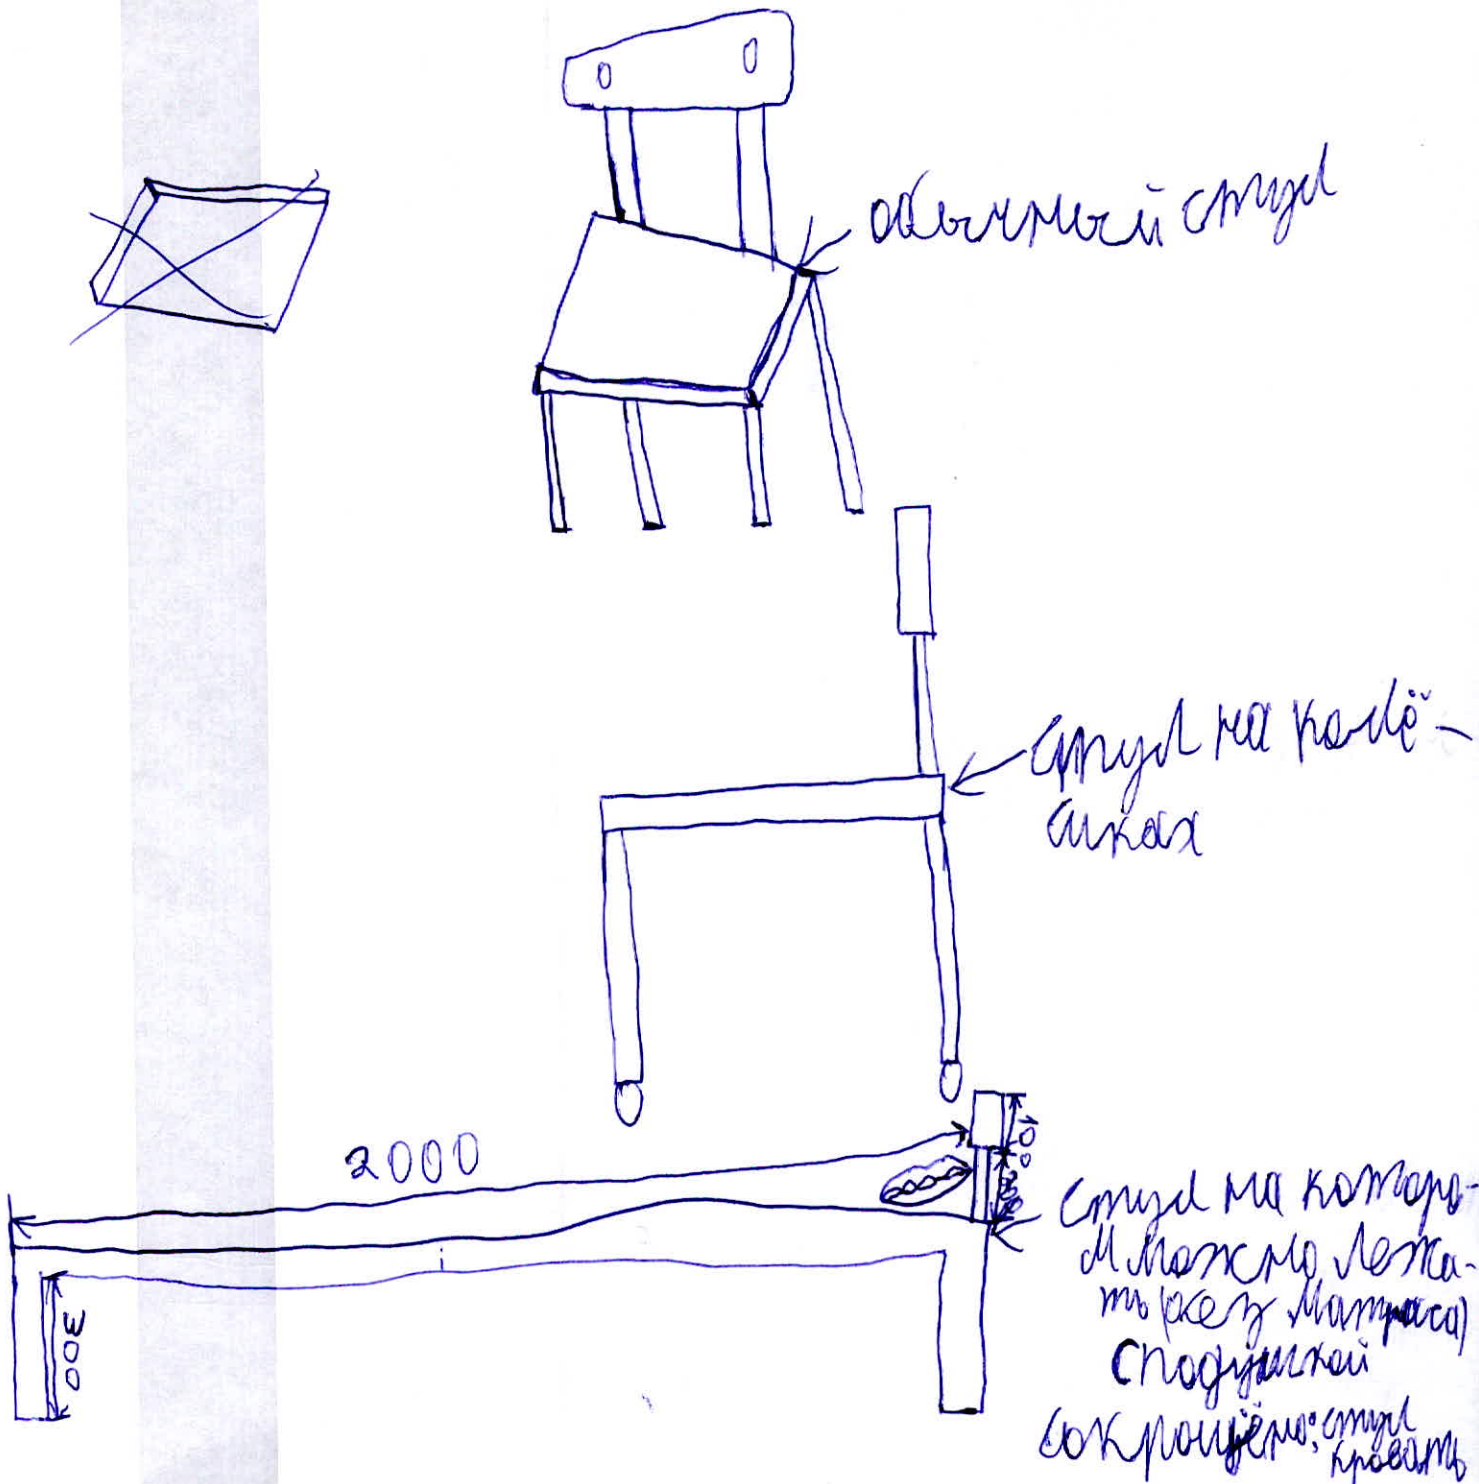 обычный стул
стул на колё-
сиках
2000
300
стул на которо-
м можно лежа-
ть (без матраса)
сподушкой
сокрощёно: стул
кровать